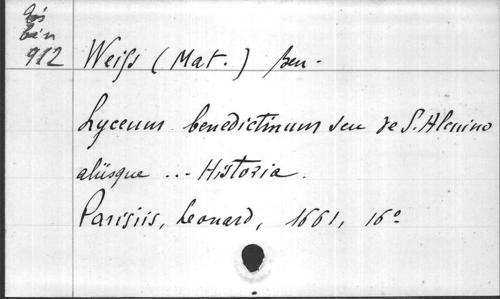 912
Weiss (Mat.) Ben-
Lyceum benedictinum seu de S. Alcuino
aliisque ... Historia.
Parisiis, Leonard, 1661, 16°